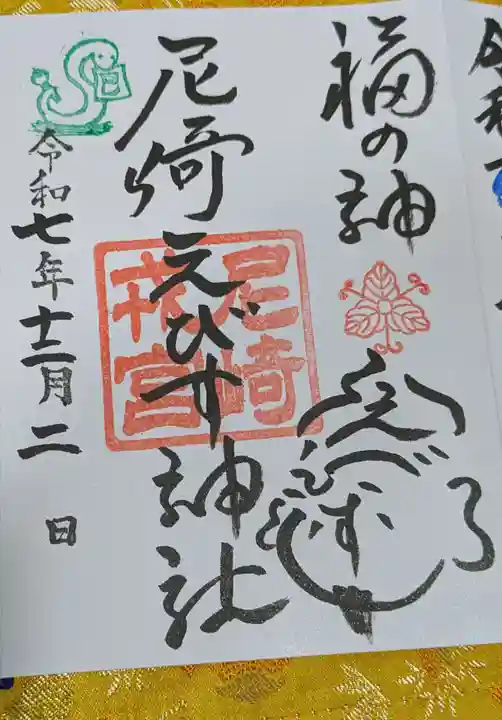 福の神
尼崎えびす神社
尼崎
戎宮
令和七年十二月二日